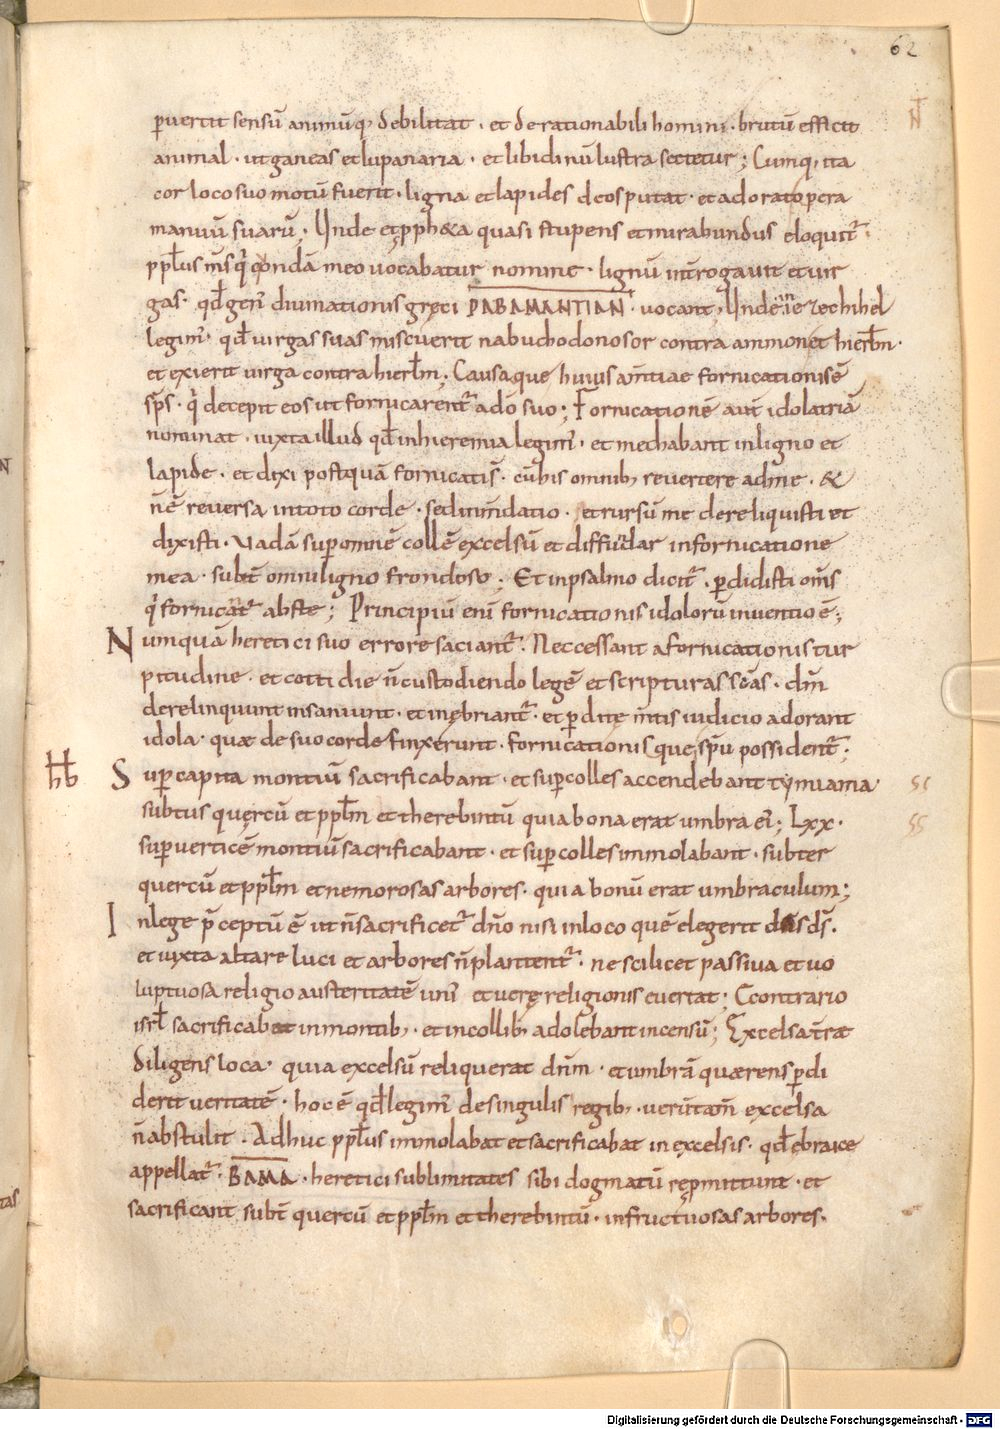 62
ꝑuertit sensū animūq; debilitat · et derationabili homini · brutū efficit
animal · ut ganeas et lupanaria · et libidinū lustra sectetur ; Cumq; ita
cor loco suo motū fuerit · ligna et lapides deos putat · et adorat opera
manuū suarū ; Unde et ꝓph&a quasi stupens et mirabundus eloquit̄ ·
ppl̄us m̄s qui quondā meo vocabatur nomine · lignū int̄rogauit et uir
gas · qd̄ gen' diuinationis gręci RABAMANTIAN · uocant ; Unde in iezechihel
legim' · qd̄ uirgas suas miscuerit nabuchodonosor contra ammon et hierl̄m ·
et exierit uirga contra hierl̄m ; Causaque huius amentiae fornicationis ē
sp̄s · q̄ decepit eos ut fornicarent̄ a dō suo ; Fornicationē aut̄ idolatriā
nominat · iuxta illud qd̄ in hieremia legim' · et mechabant in ligno et
lapide · et dixi postquā fornicat' ; cū his omnib; revertere ad me · &
n̄ ē reversa in toto corde · sed in m̄datio · et rursū me dereliquisti et
dixisti · Vadā suꝑ omnē collē excelsū et diffundar in fornicatione
mea · subt̄ omni ligno frondoso ; Et in psalmo dicit̄ · ꝑdidisti om̄s
q̄ fornicat̄ abs te ; Principiū eni fornicationis idolorū inventio ē ;
Numquā heretici suo errore saciant̄ · Nec cessant a fornicationis tur
pitudine · et cottidie n̄ custodiendo legē et scripturas sc̄as · dn̄m
derelinquunt insaniunt · et inębriant̄ · et ꝑditę m̄tis iudicio adorant
idola · quæ de suo corde finxerunt · fornicationisque sp̄u possident̄ ;
hb
Suꝑ capita montiū sacrificabant · et suꝑ colles accendebant tymiama
subtus quercū et ppl̄m et therebintū quia bona erat umbra ei' ; Lxx ·
suꝑ verticē montiū sacrificabant · et suꝑ colles immolabant · subter
quercū et ppl̄m et nemorosas arbores · quia bonū erat umbraculum ;
In lege p̄ceptū ē ut n̄ sacrificet̄ dn̄o nisi in loco quē elegerit dn̄s ds̄ ·
et iuxta altare luci et arbores n̄ plantent̄ · ne scilicet passiua et uo
luptuosa religio austeritatē uni' et uerę religionis euertat ; E contrario
isrl̄ sacrificabat in montib; · et in collib; adolebant incensū ; Excelsa t̄rae
diligens loca · quia excelsū reliquerat dn̄m · et umbrā quærens ꝑdi
derit veritatē · hoc ē qd̄ legim' de singulis regib; · verūtam̄ excelsa
n̄ abstulit · Adhuc ppl̄us immolabat et sacrificabat in excelsis · qd̄ ębraice
appellat̄ · BAMA · heretici sublimitates sibi dogmatū reꝓmittunt · et
sacrificant subt̄ quercū et ppl̄m et therebintū · infructuosas arbores ·
Digitalisierung gefördert durch die Deutsche Forschungsgemeinschaft - DFG